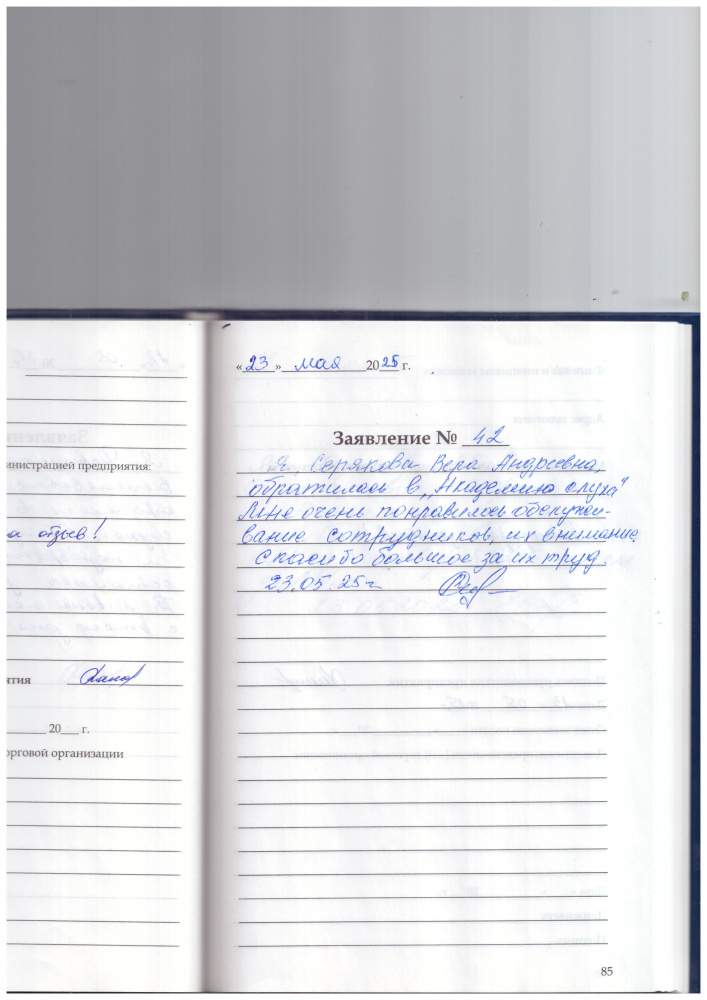 министрацией предприятия:
а отзыв!
ятия
20___ г.
орговой организации
«23» мая 2025 г.
Заявление № 42
Я Серякова Вера Андреевна,
обратилась в „Академию слуха"
Мне очень понравилось обслужи-
вание сотрудников, их внимание.
Спасибо большое за их труд.
23.05.25г
85